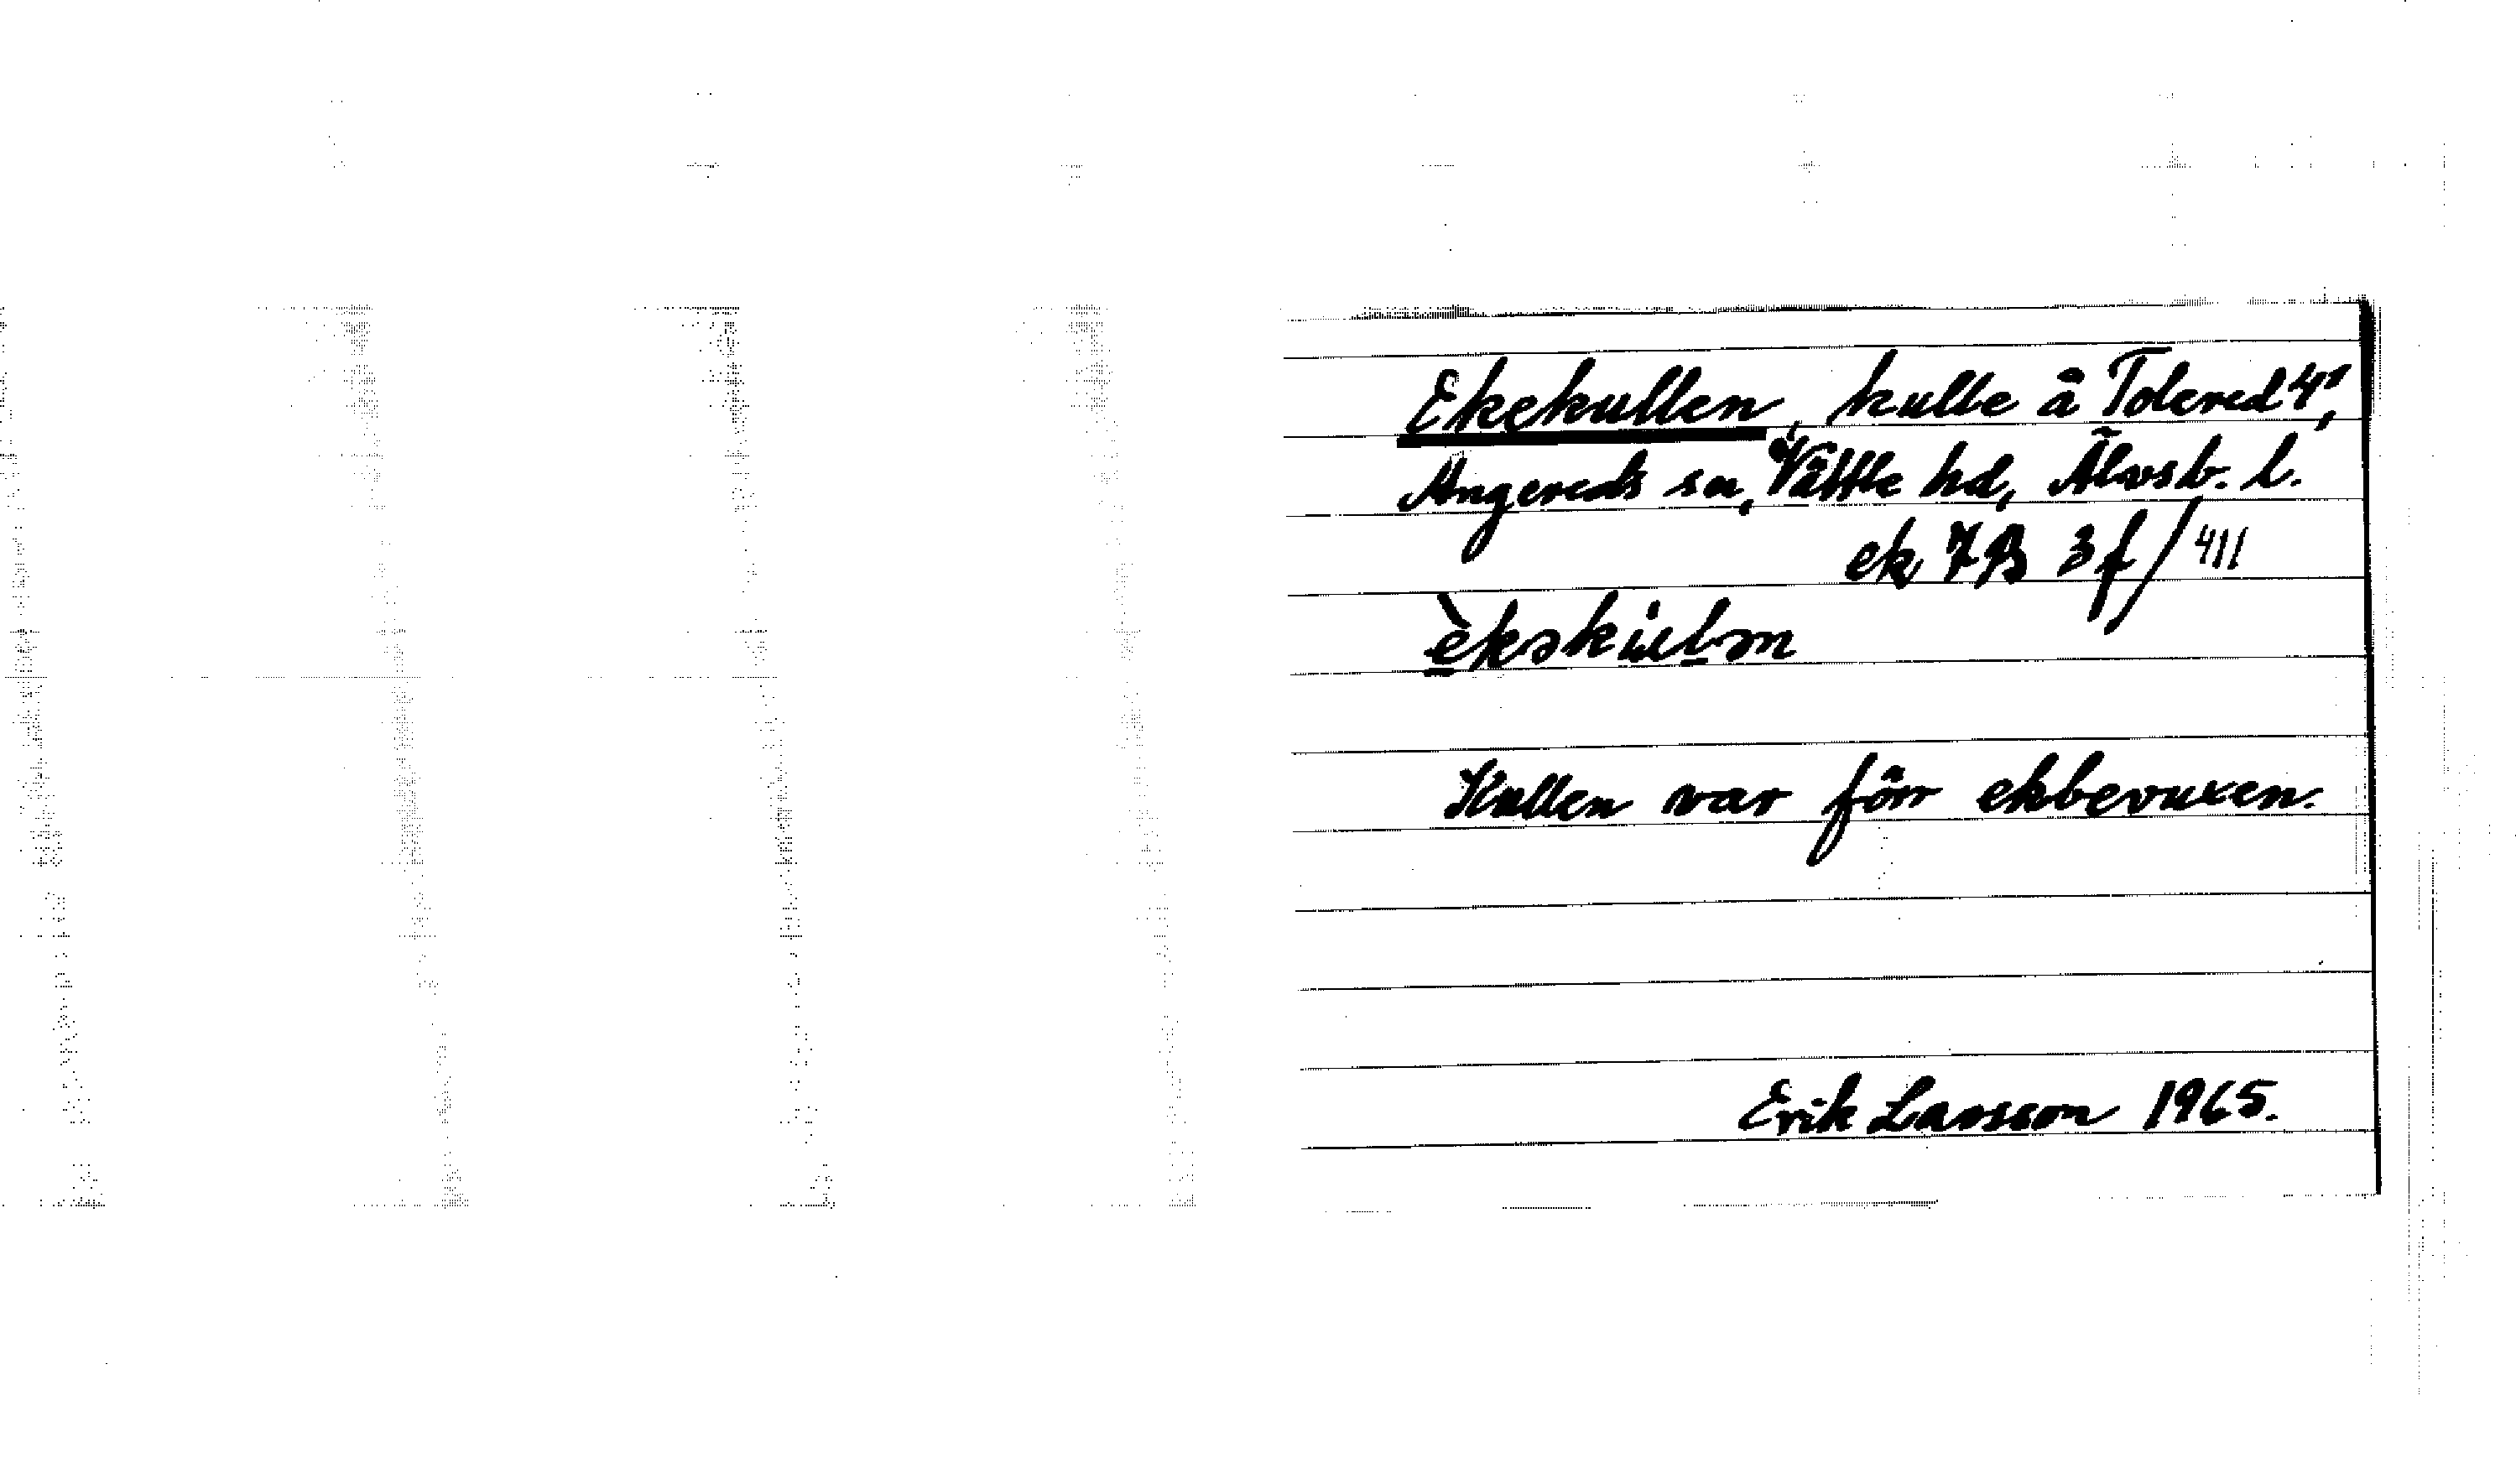 Ekekullen, kulle å Tolered 4¹,
Angereds sn, Vättle hd, Älvsb. l.
ek 7B 3f/411
èkəkùlən
Kullen var förr ekbevuxen.
Erik Larsson 1965.